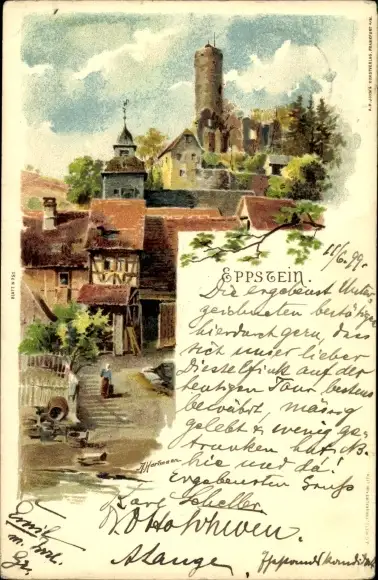 EPPSTEIN.
11/6.99.
Die ergebenst Unter-
gezeichneten bestätigen
hierdurch gern, dass
sich unser lieber
Diestelfink auf der
heutigen Tour bestens
bewährt, mässig
gelebt & wenig ge-
trunken hat, NB.
hie und da!
Ergebensten Gruss
Karl Scheller
Otto
A Lange
Emil